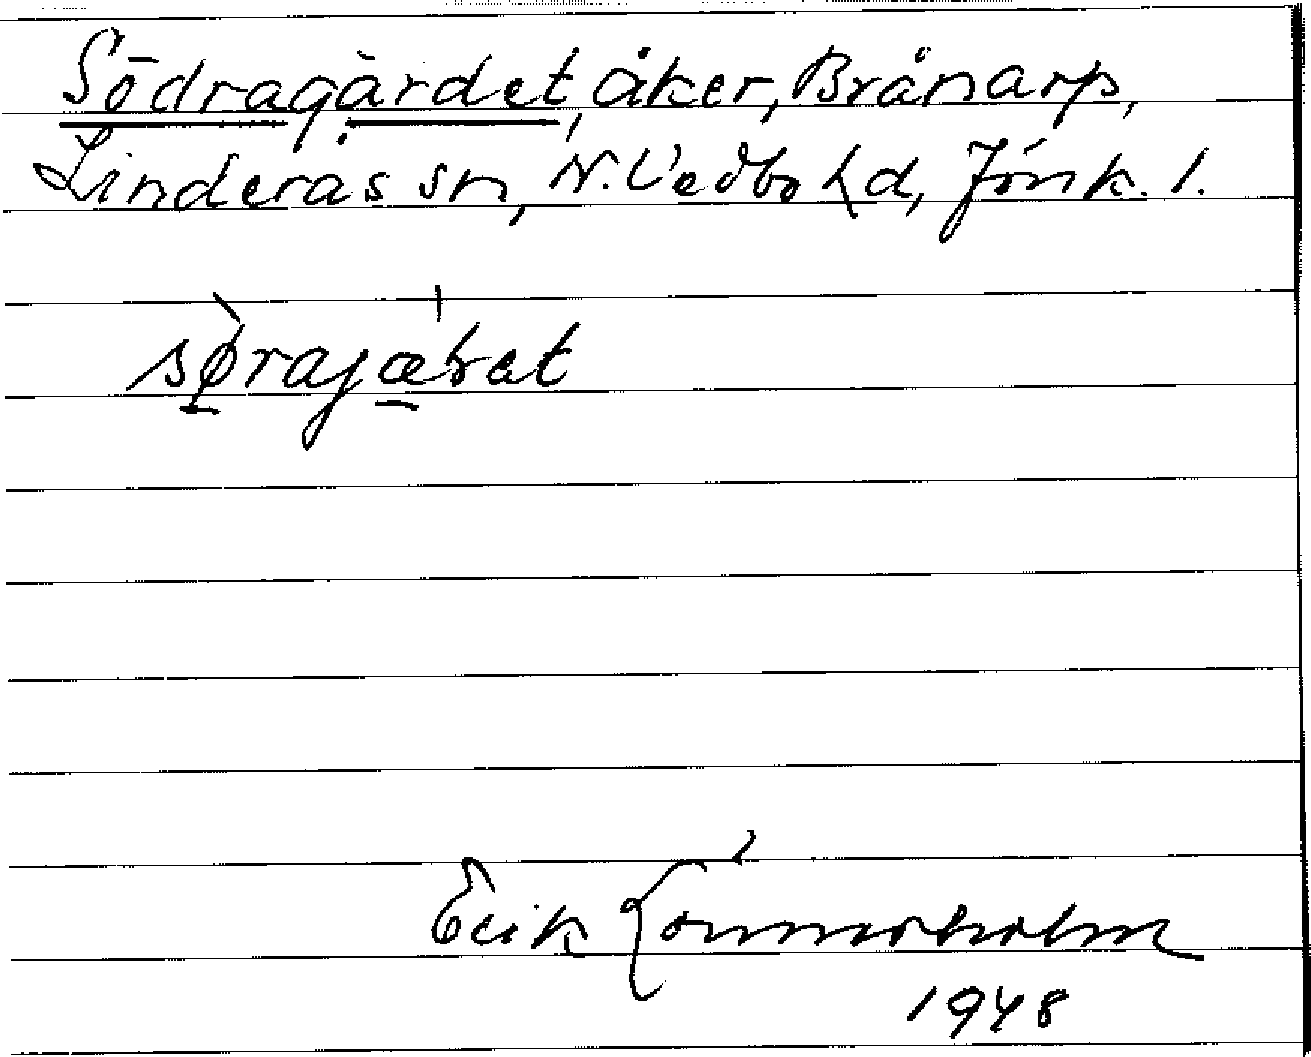 Södragärdet, åker, Brånarp,
Linderås sn, N. Vedbo hd, Jönk. l.
sørajæ̱ret
Erik Lönnerholm
1948